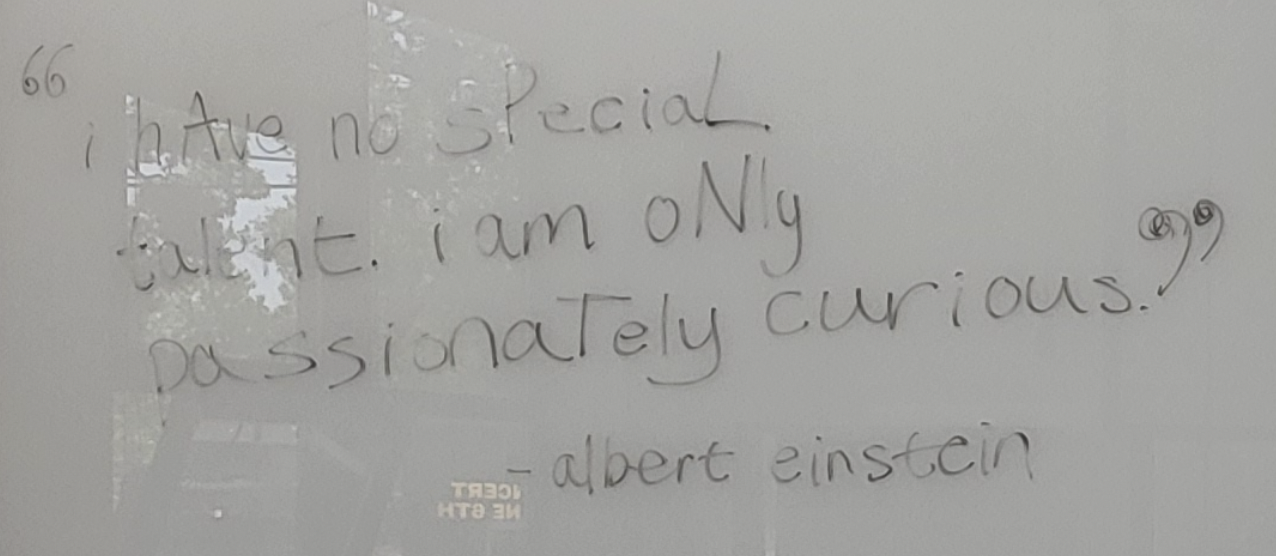 “i hAve no sPeciaL
talent. i am oNly
passionaTely curious.”
- albert einstein
NCERT
NE 8TH